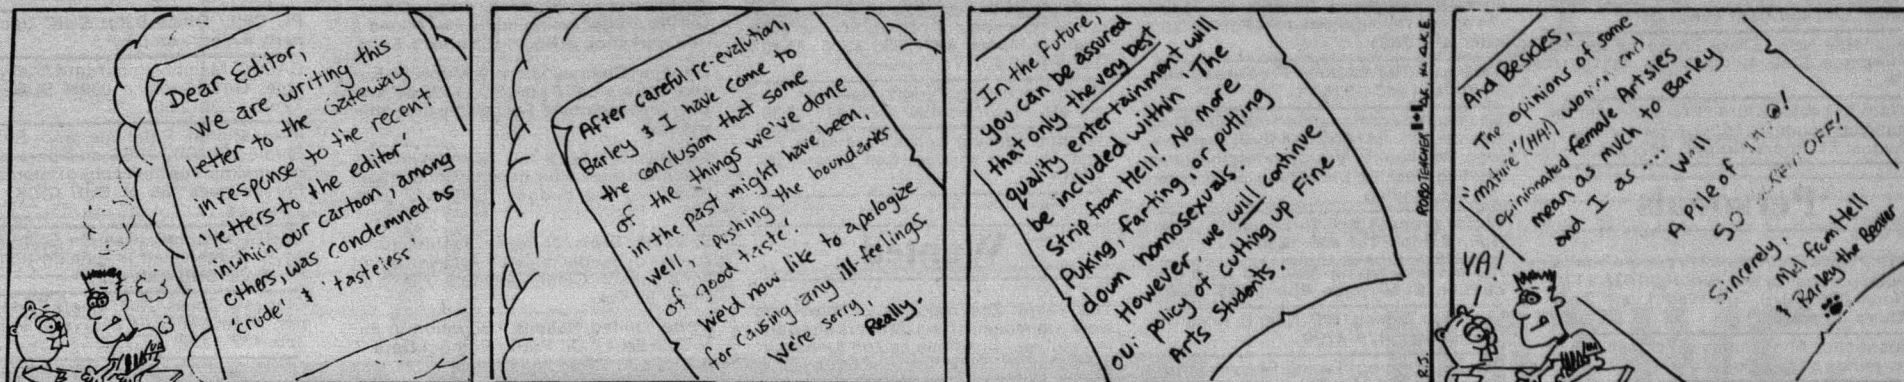 Dear Editor,
We are writing this
letter to the Gateway
in response to the recent
'letters to the editor'
in which our cartoon, among
others, was condemned as
'crude' & 'tasteless'
After careful re-evalution,
Barley & I have come to
the conclusion that some
of the things we've done
in the past might have been,
well, 'pushing the boundaries
of good taste'.
We'd now like to apologize
for causing any ill-feelings.
We're sorry,
Really.
In the future,
you can be assured
that only the very best
quality entertainment will
be included within 'The
Strip from Hell! No more
Puking, farting, or putting
down homosexuals.
However, we will continue
our policy of cutting up Fine
Arts Students.
ROBOTEACHER
R.J.
And Besides,
The opinions of some
"mature" (HA!) and
opinionated female Artsies
mean as much to Barley
and I as .... Well
A pile of
SO OFF!
Sincerely,
from Hell
& Barley the Beaver
YA!